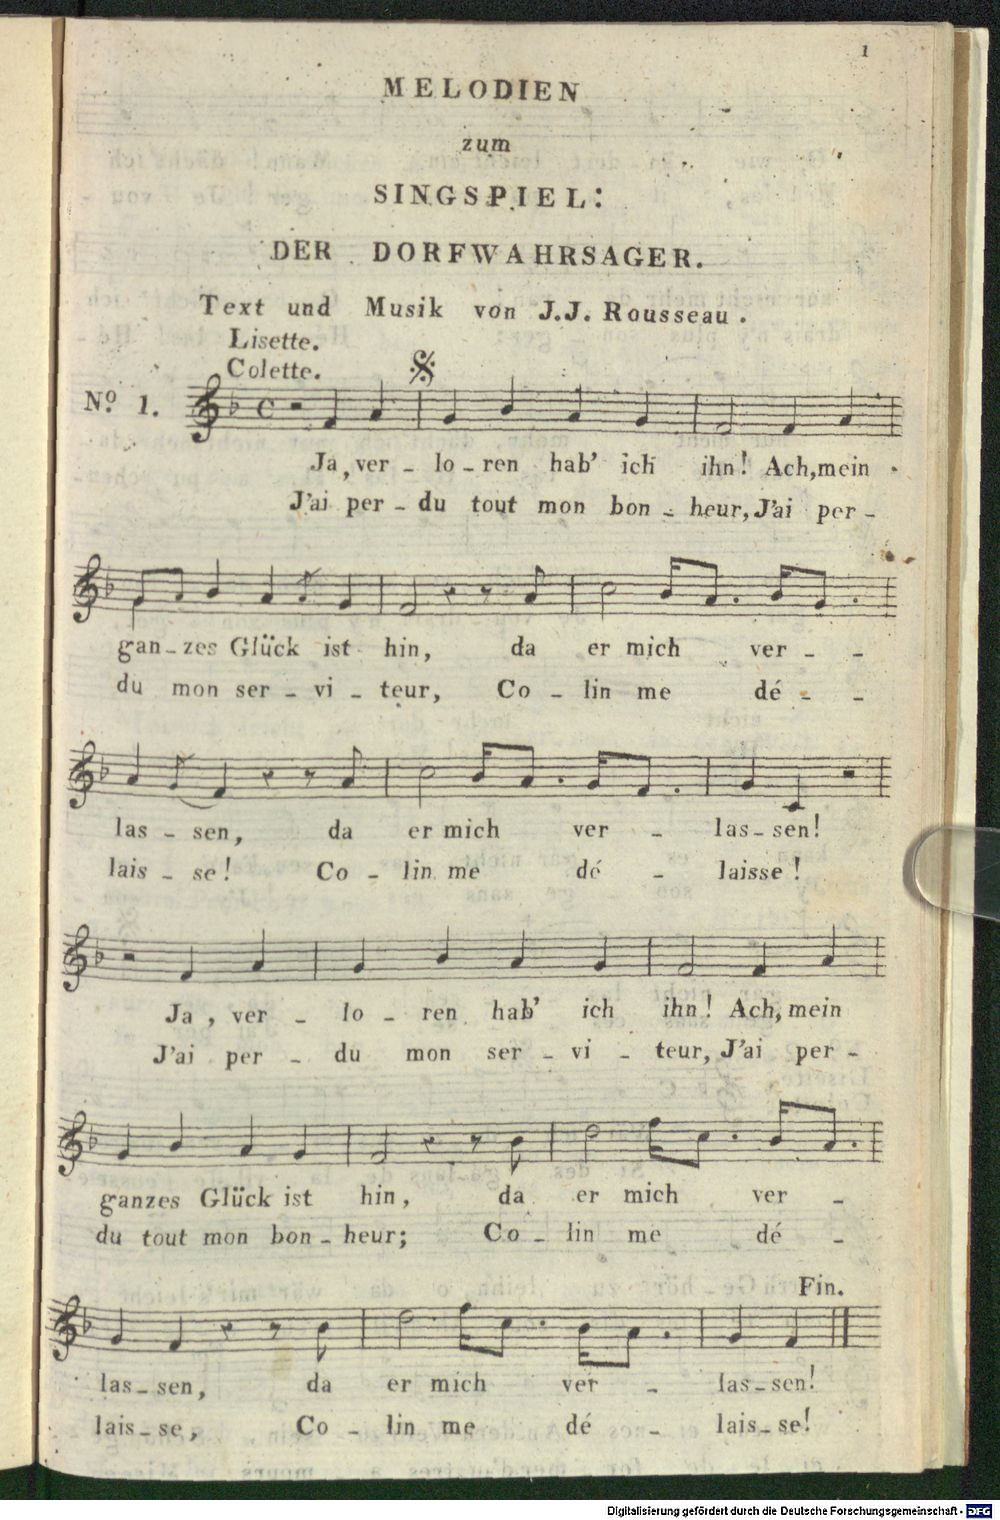 1
MELODIEN
zum
SINGSPIEL:
DER DORFWAHRSAGER.
Text und Musik von J.J. Rousseau.
Lisette.
Colette.
No. 1.
Ja, ver - lo - ren hab' ich ihn! Ach, mein
J'ai per - du tout mon bon - heur, J'ai per -
gan - zes Glück ist hin, da er mich ver - -
du mon ser - vi - teur, Co - lin me dé - -
las - sen, da er mich ver - las - sen!
lais - se! Co - lin me dé - laisse!
Ja, ver - lo - ren hab' ich ihn! Ach, mein
J'ai per - du mon ser - vi - teur, J'ai per -
ganzes Glück ist hin, da er mich ver -
du tout mon bon - heur; Co - lin me dé -
Fin.
las - sen, da er mich ver - las - sen!
lais - se, Co - lin me dé - lais - se!
Digitalisierung gefördert durch die Deutsche Forschungsgemeinschaft - DFG